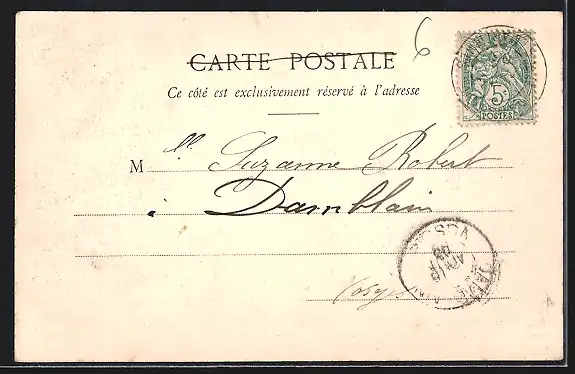 6
CARTE POSTALE
Ce côté est exclusivement réservé à l'adresse
5c
POSTES
Mlle Suzanne Robert
à Damblain
Vosges